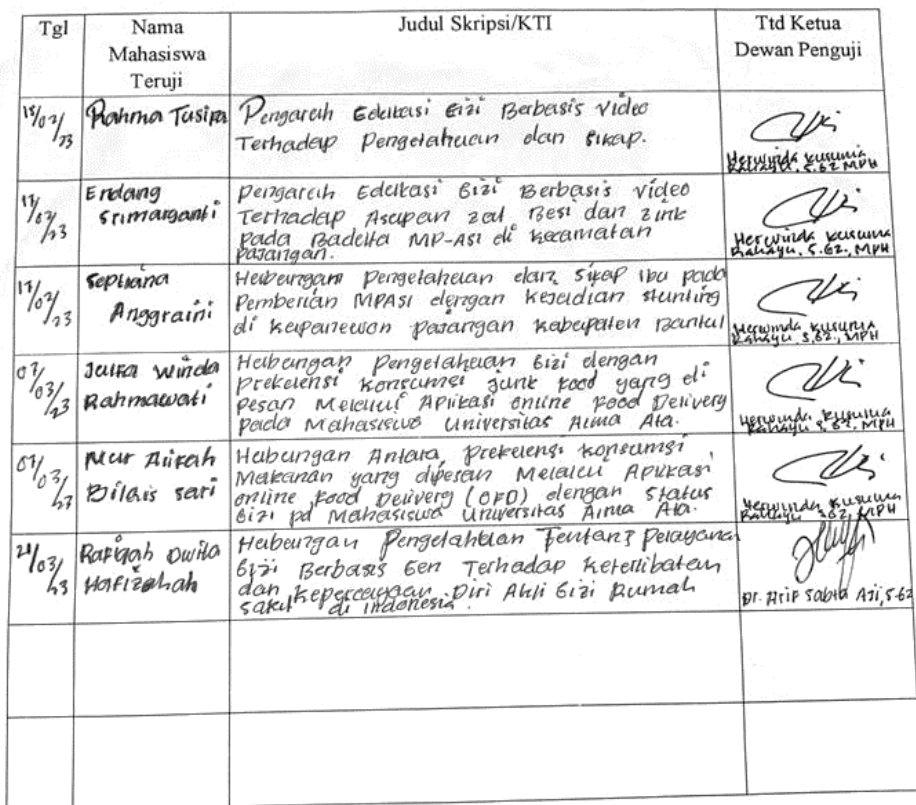 Tgl
Nama
Mahasiswa
Teruji
Judul Skripsi/KTI
Ttd Ketua
Dewan Penguji
15/02/23
Rahma Tusira
Pengaruh Edukasi Gizi Berbasis video
Terhadap Pengetahuan dan Sikap.
Herwinda Kusuma
Rahayu, S.Gz, MPH
17/02/23
Endang
Srimarganti
Pengaruh Edukasi Gizi Berbasis video
Terhadap Asupan zat Besi dan zink
Pada Baduta MP-ASI di Kecamatan
Pajangan.
Herwinda Kusuma
Rahayu, S.Gz., MPH
17/02/23
Septiana
Anggraini
Hubungan Pengetahuan dan Sikap Ibu pada
Pemberian MPASI dengan Kejadian Stunting
di Kapanewon Pajangan Kabupaten Bantul
Herwinda Kusuma
Rahayu, S.Gz., MPH
07/03/23
Winda
Rahmawati
Hubungan Pengetahuan Gizi dengan
Prekuensi Konsumsi junk food yang di
pesan Melalui Aplikasi online food Delivery
pada Mahasiswa Universitas Alma Ata.
Herwinda Kusuma
Rahayu, S.Gz, MPH
07/03/23
Nur
Bilqis Sari
Hubungan Antara Prekuensi konsumsi
Makanan yang dipesan Melalui Aplikasi
online food Delivery (OFD) dengan Status
Gizi pd Mahasiswa Universitas Alma Ata.
Herwinda Kusuma
Rahayu S.Gz, MPH
21/03/23
Rafiqah Dwita
Hafizahah
Hubungan Pengetahuan Tentang Pelayanan
Gizi Berbasis Gen Terhadap Keterlibatan
dan Kepercayaan Diri Ahli Gizi Rumah
Sakit di Indonesia.
Dr. Arif Sabta Aji, S.Gz